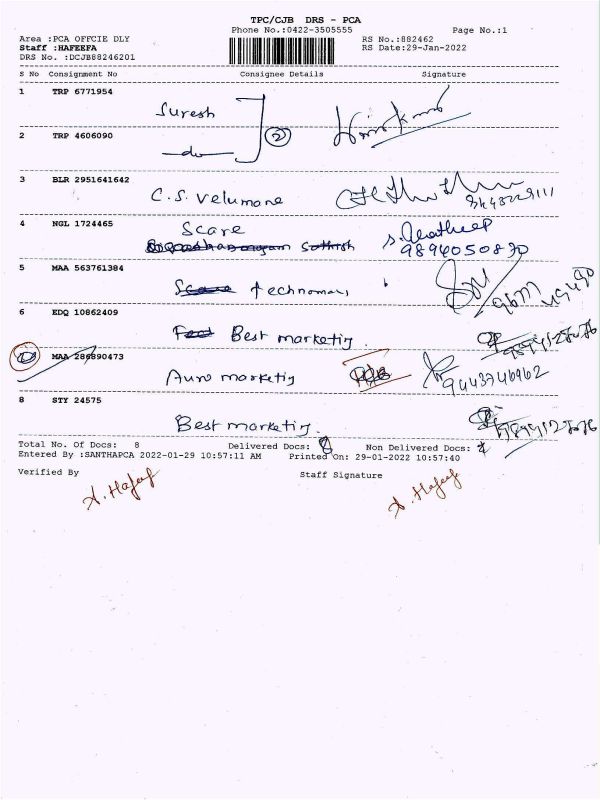 TPC/CJB DRS - PCA
Phone No.:0422-3505555 Page No.:1
Area :PCA OFFCIE DLY RS No.:882462
Staff :HAFEEFA RS Date:29-Jan-2022
DRS No. :DCJB88246201
S No Consignment No Consignee Details Signature
1 TRP 6771954
Suresh
2
2 TRP 4606090
do
3 BLR 2951641642
C.S. Velumane
4 NGL 1724465
Scare
9894050830
5 MAA 563761384
6 EDQ 10862409
Best marketing
MAA 286890473
Auro marketing 9443746962
8 STY 24575
Best marketing.
Total No. Of Docs: 8 Delivered Docs: 8 Non Delivered Docs:
Entered By :SANTHAPCA 2022-01-29 10:57:11 AM Printed On: 29-01-2022 10:57:40
Verified By Staff Signature
A. Hafeef A. Hafeef